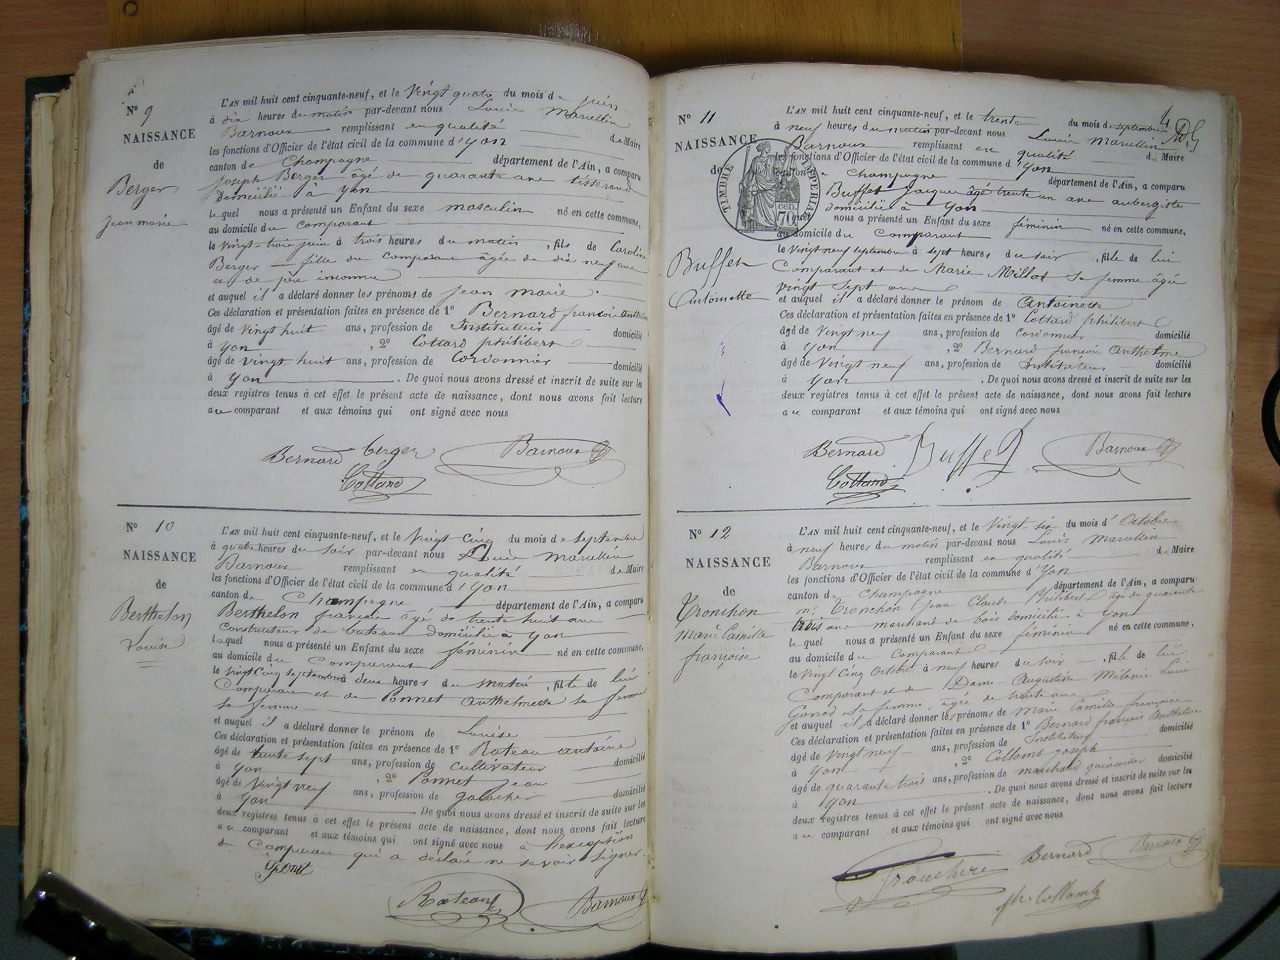 Nº 9
NAISSANCE
de
Berger
jean marie
L'AN mil huit cent cinquante-neuf, et le vingt quatre du mois de juin
à dix heures du matin par-devant nous Louis Marcellin
Barnoux remplissant en qualité de Maire
les fonctions d'Officier de l'état civil de la commune d'Yon
canton de Champagne département de l'Ain, a comparu
joseph Berger âgé de quarante ans tisserand
domicilié à yon
lequel nous a présenté un Enfant du sexe masculin né en cette commune,
au domicile du comparant
le vingt-trois juin à trois heures du matin, fils de Caroline
Berger fille du comparant âgée de dix neuf ans
et de père inconnu
et auquel il a déclaré donner les prénoms de jean marie
Ces déclaration et présentation faites en présence de 1º Bernard françois anthelme
âgé de vingt huit ans, profession de Instituteur domicilié
à yon, 2º Cottard philibert
âgé de vingt huit ans, profession de Cordonnier domicilié
à yon. De quoi nous avons dressé et inscrit de suite sur les
deux registres tenus à cet effet le présent acte de naissance, dont nous avons fait lecture
au comparant et aux témoins qui ont signé avec nous
Bernard berger Barnoux
Cottard
Nº 10
NAISSANCE
de
Berthelon
Louise
L'AN mil huit cent cinquante-neuf, et le vingt cinq du mois de septembre
à quatre heures du soir par-devant nous Louis Marcellin
Barnoux remplissant en qualité de Maire
les fonctions d'Officier de l'état civil de la commune d'Yon
canton de Champagne département de l'Ain, a comparu
Berthelon françois âgé de trente huit ans
Constructeur de bateau domicilié à yon
lequel nous a présenté un Enfant du sexe féminin né en cette commune,
au domicile du comparant
le vingt cinq septembre à deux heures du matin, fille de lui
Comparant et de Ponnet anthelmette sa femme
sa femme
et auquel il a déclaré donner le prénom de Louise
Ces déclaration et présentation faites en présence de 1º Rateau antoine
âgé de trente sept ans, profession de cultivateur domicilié
à yon, 2º Ponnet jean
âgé de vingt neuf ans, profession de galocher domicilié
à yon. De quoi nous avons dressé et inscrit de suite sur les
deux registres tenus à cet effet le présent acte de naissance, dont nous avons fait lecture
au comparant et aux témoins qui ont signé avec nous à l'exception
du comparant qui a déclaré ne savoir signer
Rateau Barnoux
Nº 11
NAISSANCE
de
Buffet
Antoinette
TIMBRE IMPERIAL
70
L'AN mil huit cent cinquante-neuf, et le trente du mois de septembre
à neuf heures du matin par-devant nous Louis Marcellin
Barnoux remplissant en qualité de Maire
les fonctions d'Officier de l'état civil de la commune d'Yon
canton de Champagne département de l'Ain, a comparu
Buffet jacques âgé trente un ans aubergiste
domicilié à yon
lequel nous a présenté un Enfant du sexe féminin né en cette commune,
au domicile du comparant
le vingt neuf septembre à sept heures du soir, fille de lui
Comparant et de Marie Millot sa femme âgée
vingt sept ans
et auquel il a déclaré donner le prénom de antoinette
Ces déclaration et présentation faites en présence de 1º Cottard philibert
âgé de vingt neuf ans, profession de cordonnier domicilié
à yon, 2º Bernard françois anthelme
âgé de vingt neuf ans, profession de Instituteur domicilié
à yon. De quoi nous avons dressé et inscrit de suite sur les
deux registres tenus à cet effet le présent acte de naissance, dont nous avons fait lecture
au comparant et aux témoins qui ont signé avec nous
Bernard Buffet Barnoux
Cottard
Nº 12
NAISSANCE
de
Tronchon
Marie Camille
françoise
L'AN mil huit cent cinquante-neuf, et le vingt six du mois d'Octobre
à neuf heures du matin par-devant nous Louis Marcellin
Barnoux remplissant en qualité de Maire
les fonctions d'Officier de l'état civil de la commune d'Yon
canton de Champagne département de l'Ain, a comparu
mr Tronchon jean Claude philibert âgé de quarante
trois ans marchand de bois domicilié à yon
lequel nous a présenté un Enfant du sexe féminin né en cette commune,
au domicile du Comparant
le vingt cinq Octobre à neuf heures du soir, fille de lui
Comparant et de Dame Augustine Mélanie
sa femme, âgée de trente ans
et auquel il a déclaré donner les prénoms de Marie Camille françoise
Ces déclaration et présentation faites en présence de 1º Bernard françois Anthelme
âgé de vingt neuf ans, profession de Instituteur domicilié
à yon, 2º Collomb joseph
âgé de quarante trois ans, profession de marchand domicilié
à yon. De quoi nous avons dressé et inscrit de suite sur les
deux registres tenus à cet effet le présent acte de naissance, dont nous avons fait lecture
au comparant et aux témoins qui ont signé avec nous
Bernard Barnoux
Collomb